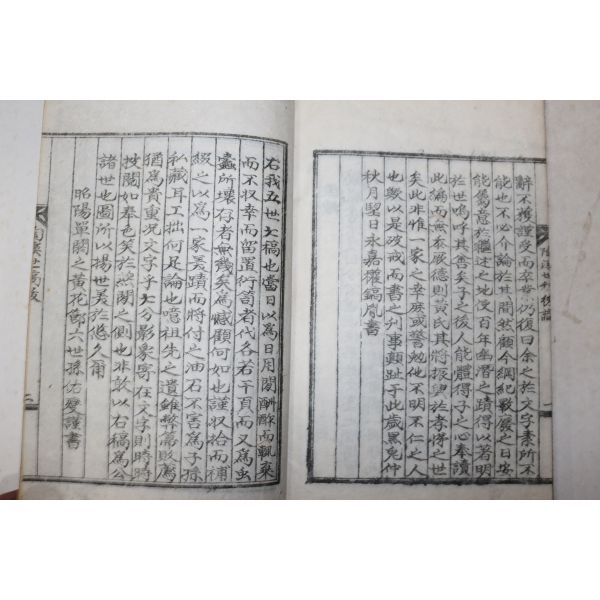 辭不獲謹受而卒業仍復曰余之於文字素所不
能也不必介論於其間然顧今綱紀斁廢之日安
能寓意於繼述之地使百年幽潛之蹟得以著明
於世嗚呼其善矣子之後人能體得子之心奉讀
此編而無忝厥德則黃氏其將振興於李悌之世
矣此非惟一家之幸庶或警勉他不明不仁之人
也歟以是波戒而書之刊事顚趾于此歲黑兔仲
秋月望日永嘉權鎬胤書
右我五世大稿也當日以爲日用間酬酢而輒棄
而不収幸而留置術笥者代各若干頁而又爲虫
蠹所壞存者無幾矣爲憾顧何如也謹収拾而補
綴之以爲一家美蹟而將付之油石不害爲子孫
私藏耳工拙何足論也噫祖先之遺雖弊帚敗屩
猶爲貴重況文字乎七分影象寄在文字則時時
披閱如奉色笑於熙閒之側也非敢以右稿爲公
諸世也圖所以揚世美於悠久爾
昭陽單閼之黃花節六世孫 變謹書